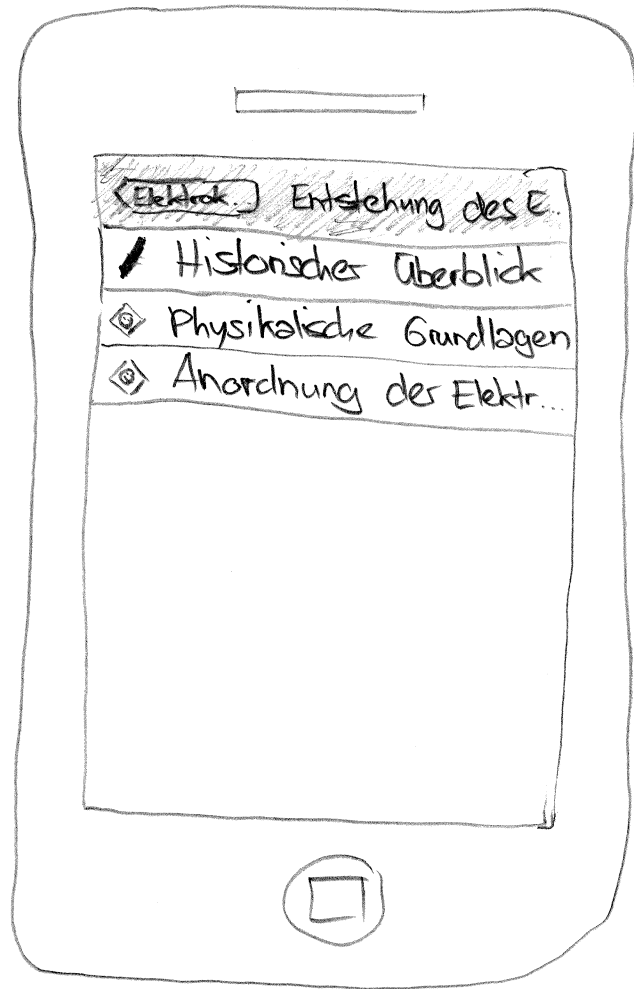 Elektrok... Entstehung des E..
Historischer Überblick
Physikalische Grundlagen
Anordnung der Elektr...